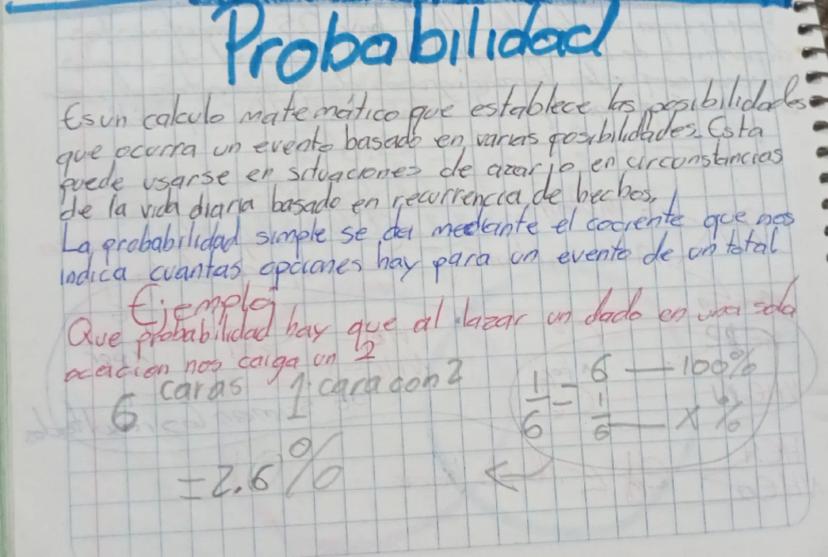 Probabilidad
Es un calculo matemático que establece las posibilidades
que ocurra un evento basado en varias posibilidades. Esta
puede usarse en situaciones de azar, o en circonstancias
de la vida diaria basado en recurrencia de hechos.
La probabilidad simple se da mediante el cociente que nos
indica cuantas opciones hay para un evento de un total
Ejemplo
Que probabilidad hay que al lazar un dado en una sola
ocación nos caiga un 2
6 caras 1 cara con 2
1/6 = 6 — 100%
1/6 — x %
= 2.6 %